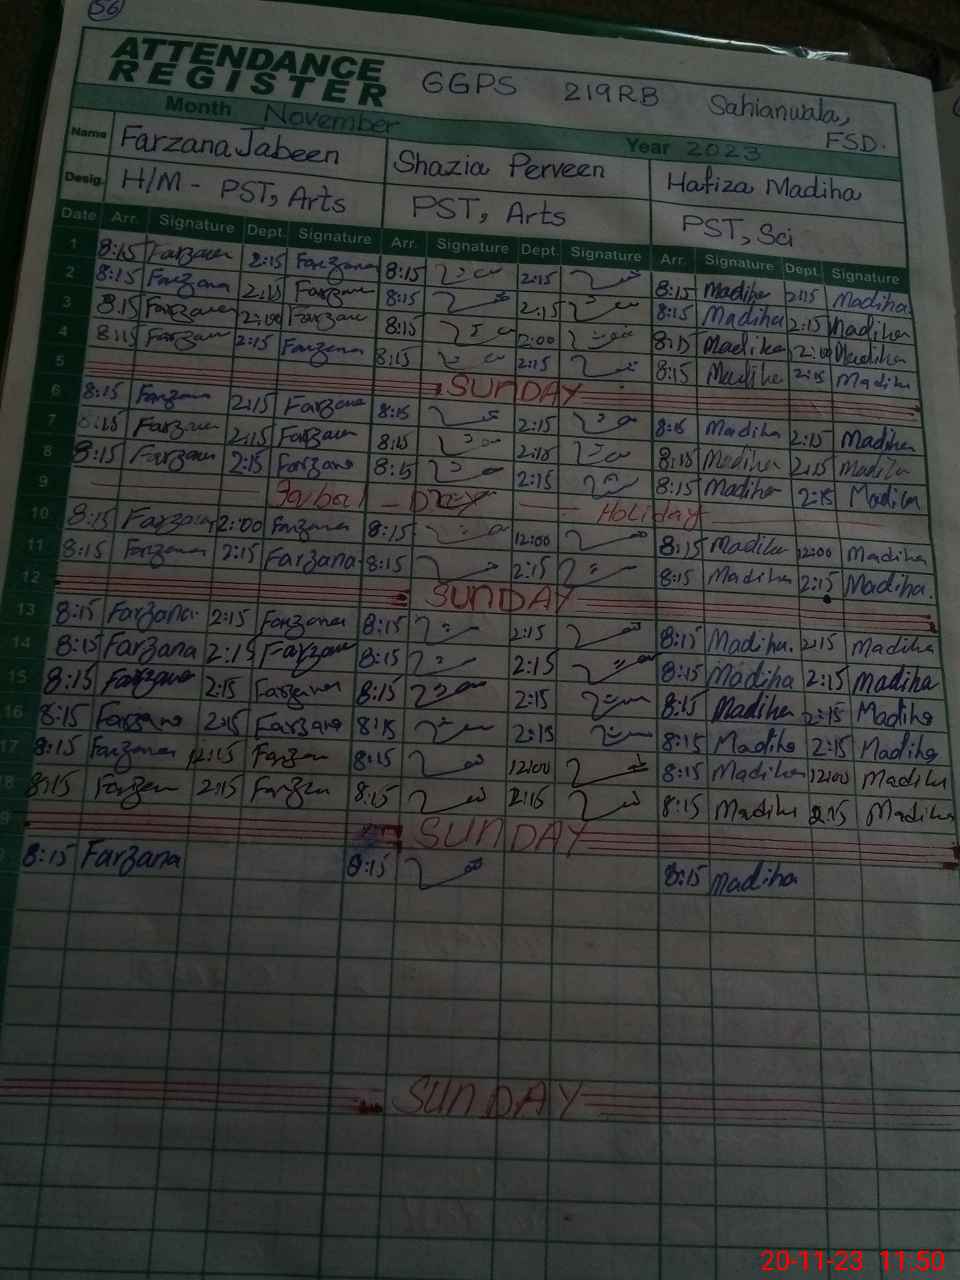 56
ATTENDANCE
REGISTER
GGPS 219RB Sahianwala,
FSD.
Month November Year 2023
Name Farzana Jabeen Shazia Perveen Hafiza Madiha
Desig. H/M - PST, Arts PST, Arts PST, Sci
Date Arr. Signature Dept. Signature Arr. Signature Dept. Signature Arr. Signature Dept. Signature
1 8:15 Farzana 2:15 Farzana 8:15 2:15 8:15 Madiha 2:15 Madiha
2 8:15 Farzana 2:15 Farzana 8:15 2:15 8:15 Madiha 2:15 Madiha
3 8:15 Farzana Farzana 8:15 2:00 8:15 Madiha Madiha
4 8:15 Farzana 2:15 Farzana 8:15 2:15 8:15 Madiha 2:15 Madiha
5 SUNDAY
6 8:15 Farzana 2:15 Farzana 8:15 2:15 8:15 Madiha 2:15 Madiha
7 8:15 Farzana 2:15 Farzana 8:15 2:15 8:15 Madiha 2:15 Madiha
8 8:15 Farzana 2:15 Farzana 8:15 2:15 8:15 Madiha 2:15 Madiha
9 DAY Holiday
10 8:15 Farzana 2:00 Farzana 8:15 12:00 8:15 Madiha 12:00 Madiha
11 8:15 Farzana 2:15 Farzana 8:15 2:15 8:15 Madiha 2:15 Madiha.
12 SUNDAY
13 8:15 Farzana 2:15 Farzana 8:15 2:15 8:15 Madiha. 2:15 Madiha
14 8:15 Farzana 2:15 Farzana 8:15 2:15 8:15 Madiha 2:15 Madiha
15 8:15 Farzana 2:15 Farzana 8:15 2:15 8:15 Madiha 2:15 Madiha
16 8:15 Farzana 2:15 Farzana 8:15 2:15 8:15 Madiha 2:15 Madiha
17 8:15 Farzana 12:15 Farzana 8:15 12:00 8:15 Madiha 12:00 Madiha
8 8:15 Farzana 2:15 Farzana 8:15 2:15 8:15 Madiha 2:15 Madiha
9 SUNDAY
8:15 Farzana 8:15 8:15 Madiha
SUNDAY
20-11-23 11.50